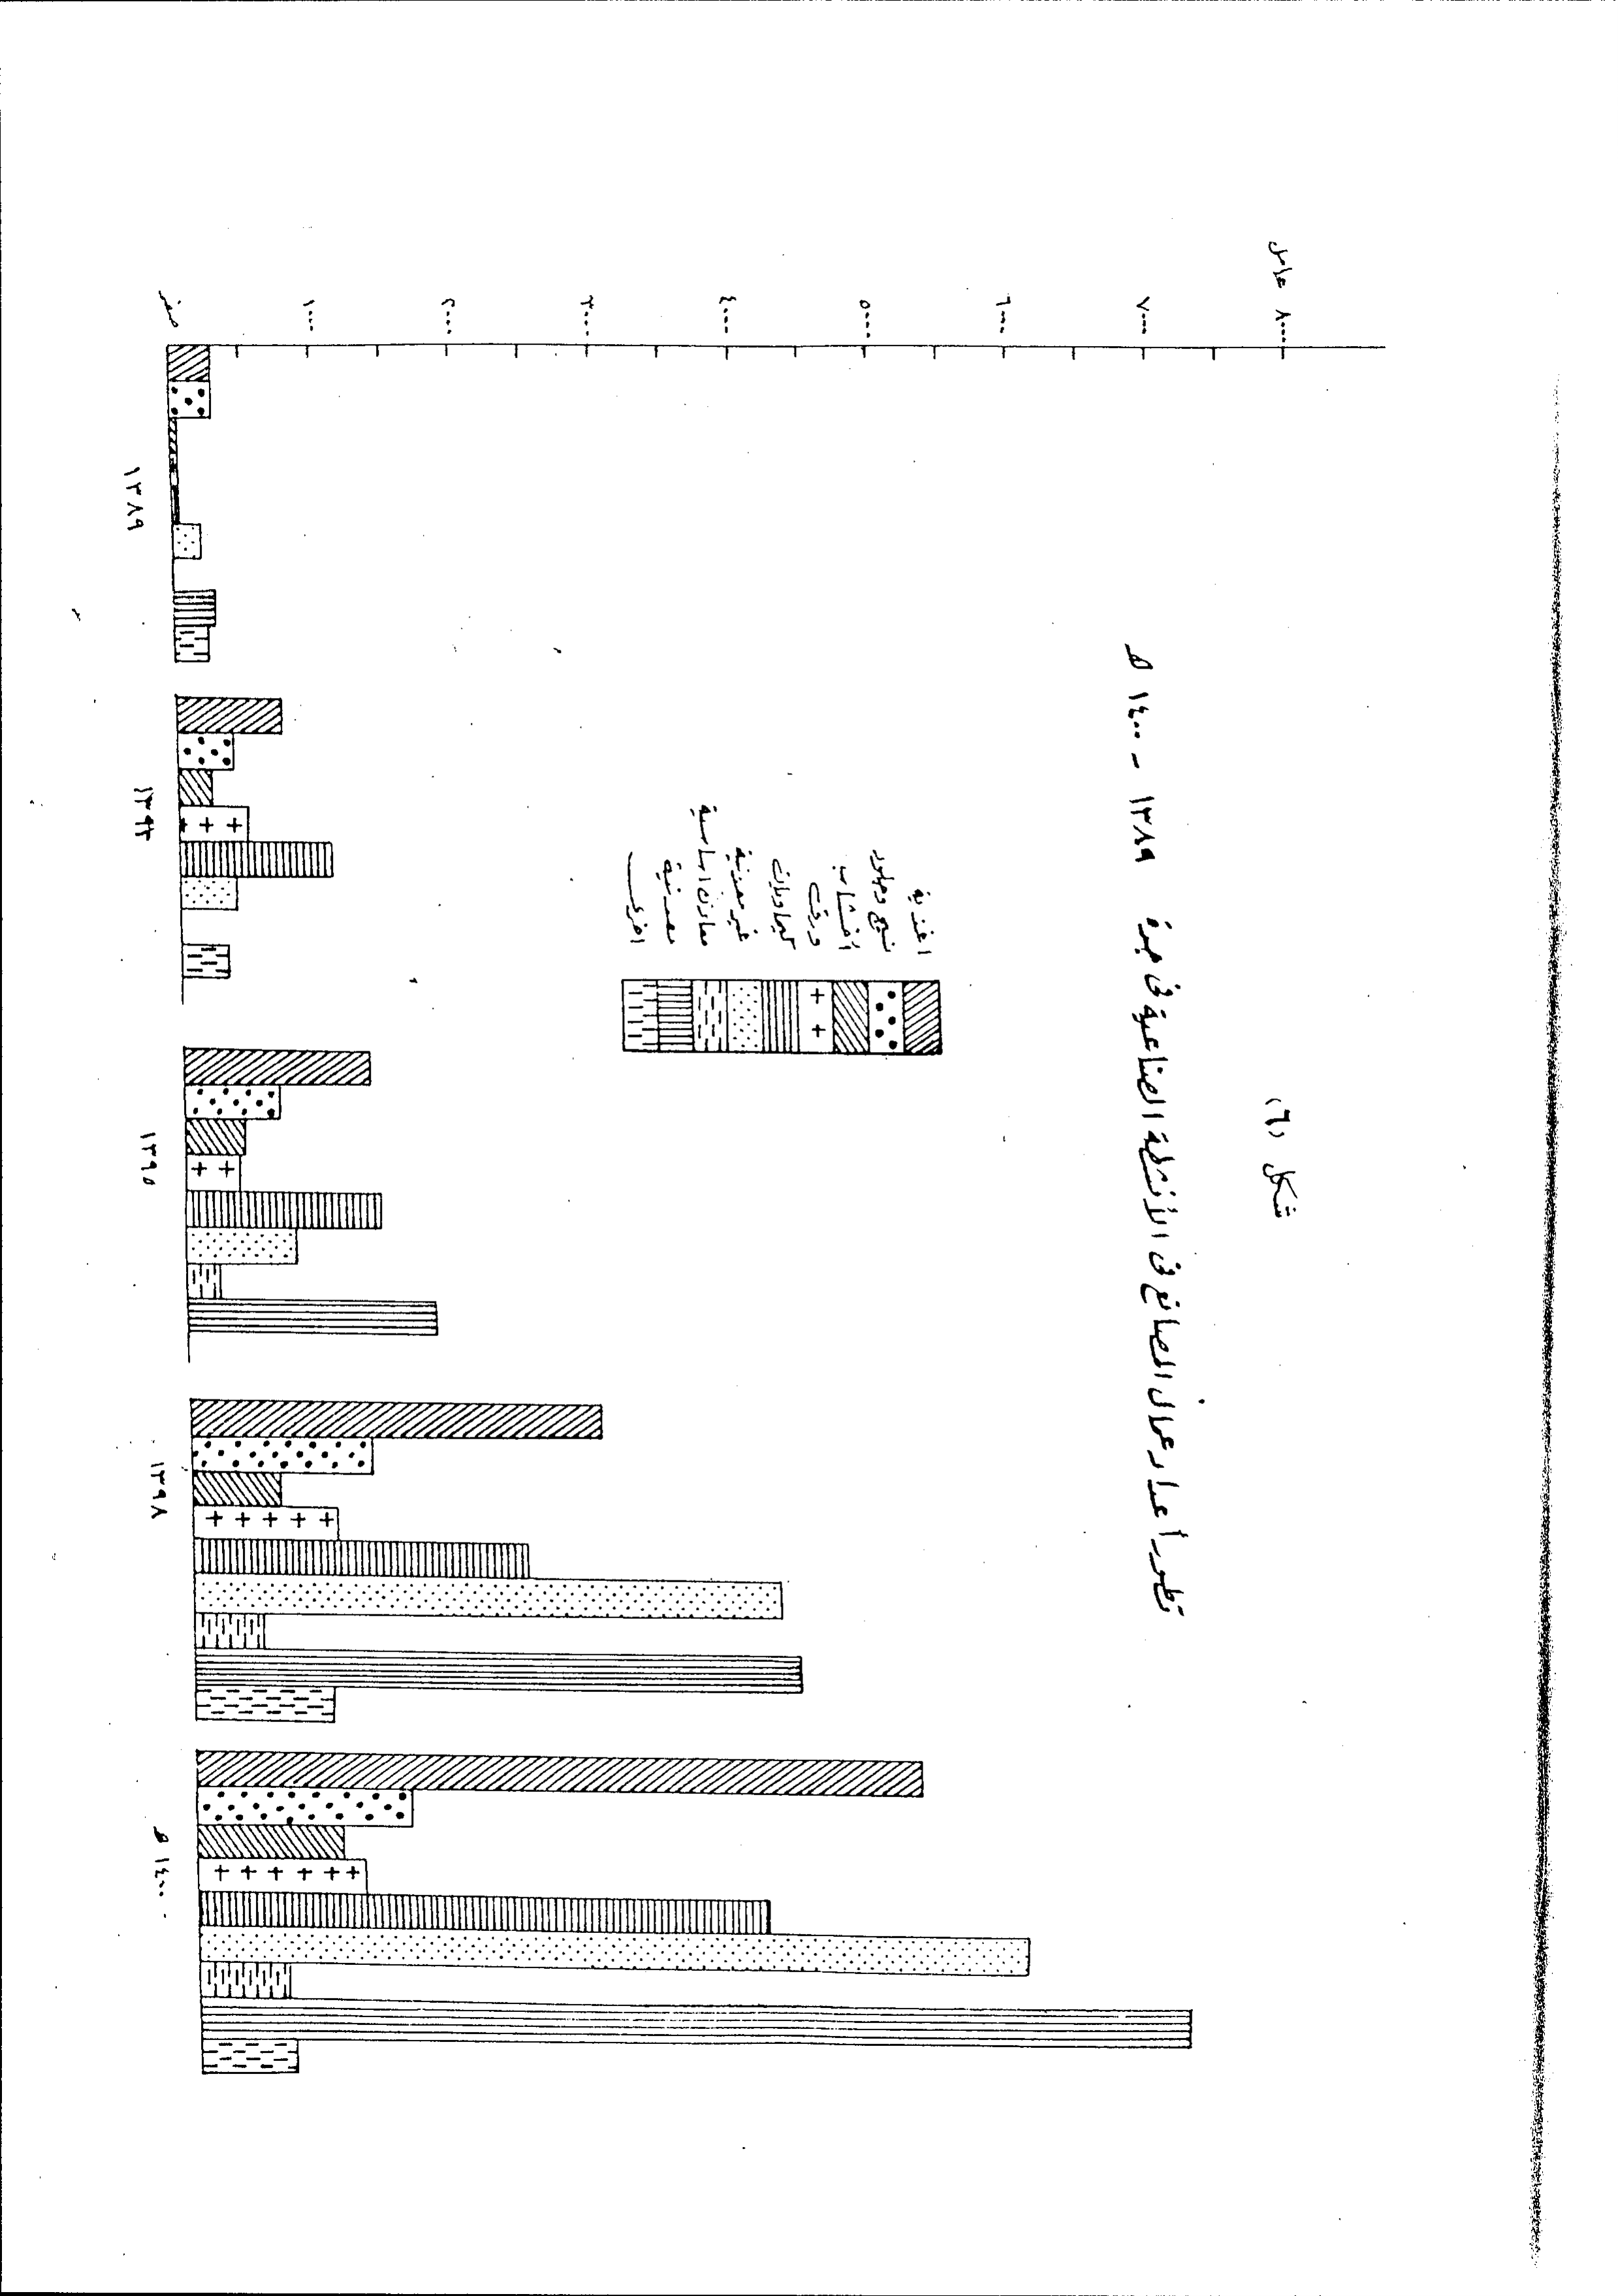 شكل (٦)
تطور أعداد عمال المصانع فى الأنشطة الصناعية فى جدة ١٣٨٩ - ١٤٠٠ هـ
٨٠٠٠ عامل
٧٠٠٠
٦٠٠٠
٥٠٠٠
٤٠٠٠
٣٠٠٠
٢٠٠٠
١٠٠٠
صفر
اغذية
نسيج وجلود
اخشاب
ورق
كيماويات
غير معدنية
معادن اساسية
معدنية
اخرى
١٣٨٩
١٣٩٢
١٣٩٥
١٣٩٨
١٤٠٠ هـ